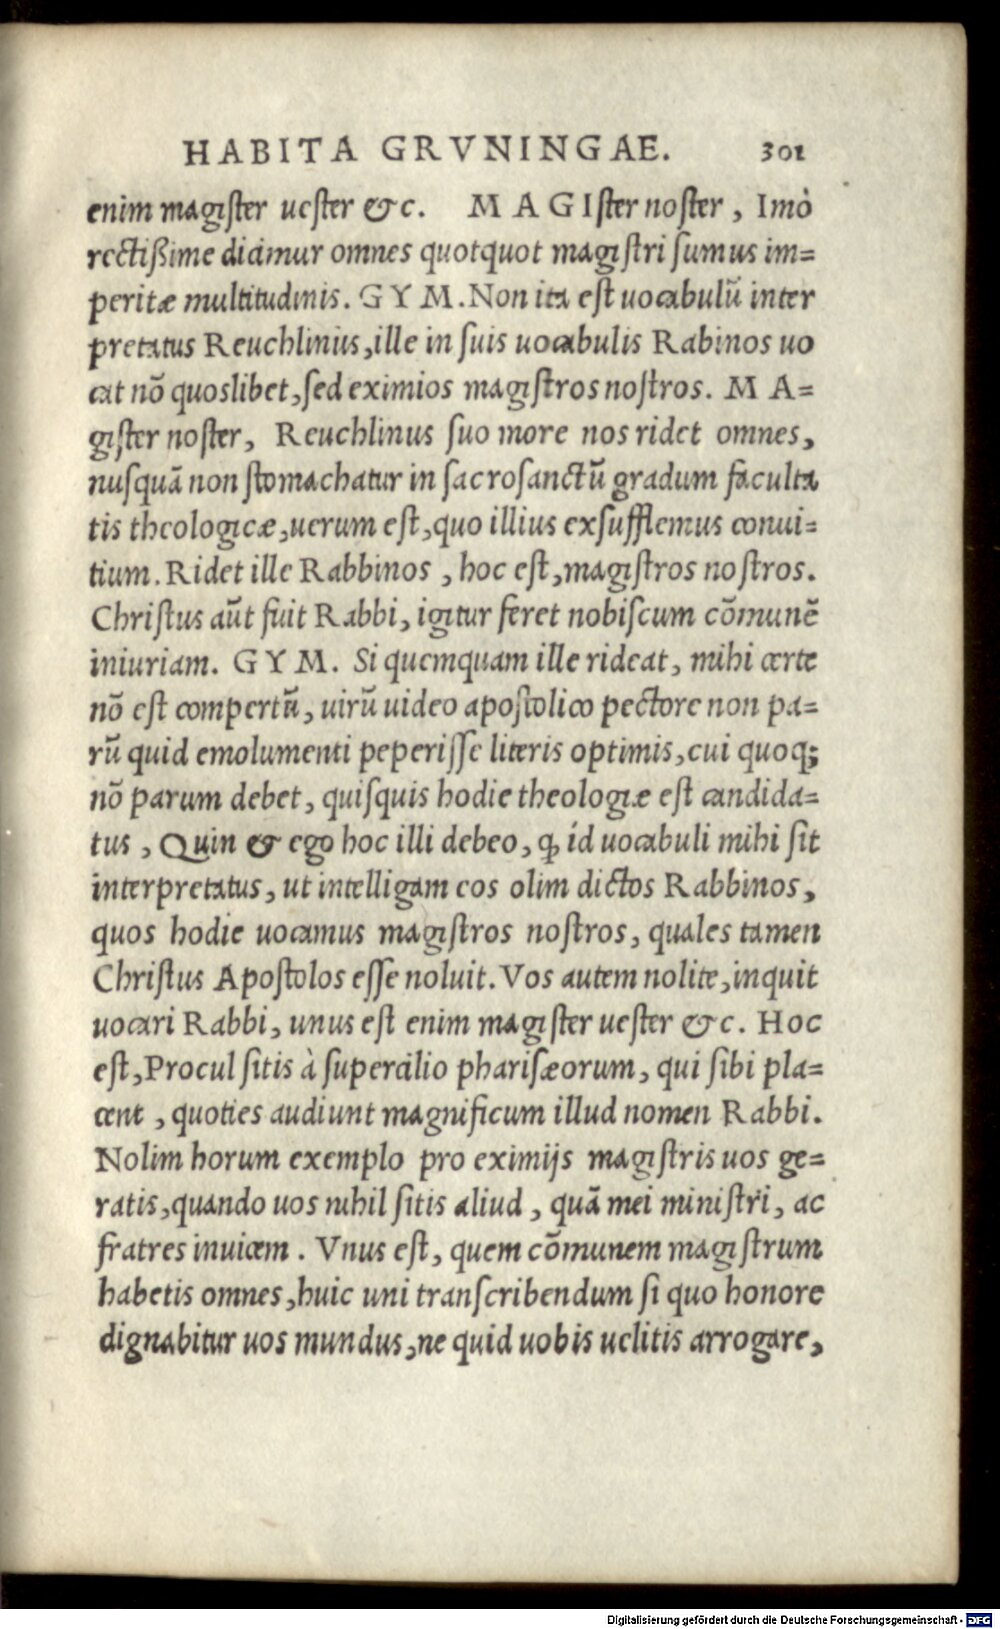 HABITA GRVNINGAE. 301
enim magister uester &c. MAGIster noster, Imò
rectißime dicimur omnes quotquot magistri sumus im=
peritæ multitudinis. GYM. Non ita est uocabulũ inter
pretatus Reuchlinius, ille in suis uocabulis Rabinos uo
cat nõ quoslibet, sed eximios magistros nostros. MA=
gister noster, Reuchlinus suo more nos ridet omnes,
nusquã non stomachatur in sacrosanctũ gradum faculta
tis theologicæ, uerum est, quo illius exsufflemus conui=
tium. Ridet ille Rabbinos, hoc est, magistros nostros.
Christus aũt fuit Rabbi, igitur feret nobiscum cõmunẽ
iniuriam. GYM. Si quemquam ille rideat, mihi certe
nõ est compertũ, uirũ uideo apostolico pectore non pa=
rũ quid emolumenti peperisse literis optimis, cui quoq;
nõ parum debet, quisquis hodie theologiæ est candida=
tus, Quin & ego hoc illi debeo, ꝙ id uocabuli mihi sit
interpretatus, ut intelligam eos olim dictos Rabbinos,
quos hodie uocamus magistros nostros, quales tamen
Christus Apostolos esse noluit. Vos autem nolite, inquit
uocari Rabbi, unus est enim magister uester &c. Hoc
est, Procul sitis à supercilio pharisæorum, qui sibi pla=
cent, quoties audiunt magnificum illud nomen Rabbi.
Nolim horum exemplo pro eximijs magistris uos ge=
ratis, quando uos nihil sitis aliud, quã mei ministri, ac
fratres inuicem. Vnus est, quem cõmunem magistrum
habetis omnes, huic uni transcribendum si quo honore
dignabitur uos mundus, ne quid uobis uelitis arrogare,
Digitalisierung gefördert durch die Deutsche Forschungsgemeinschaft - DFG